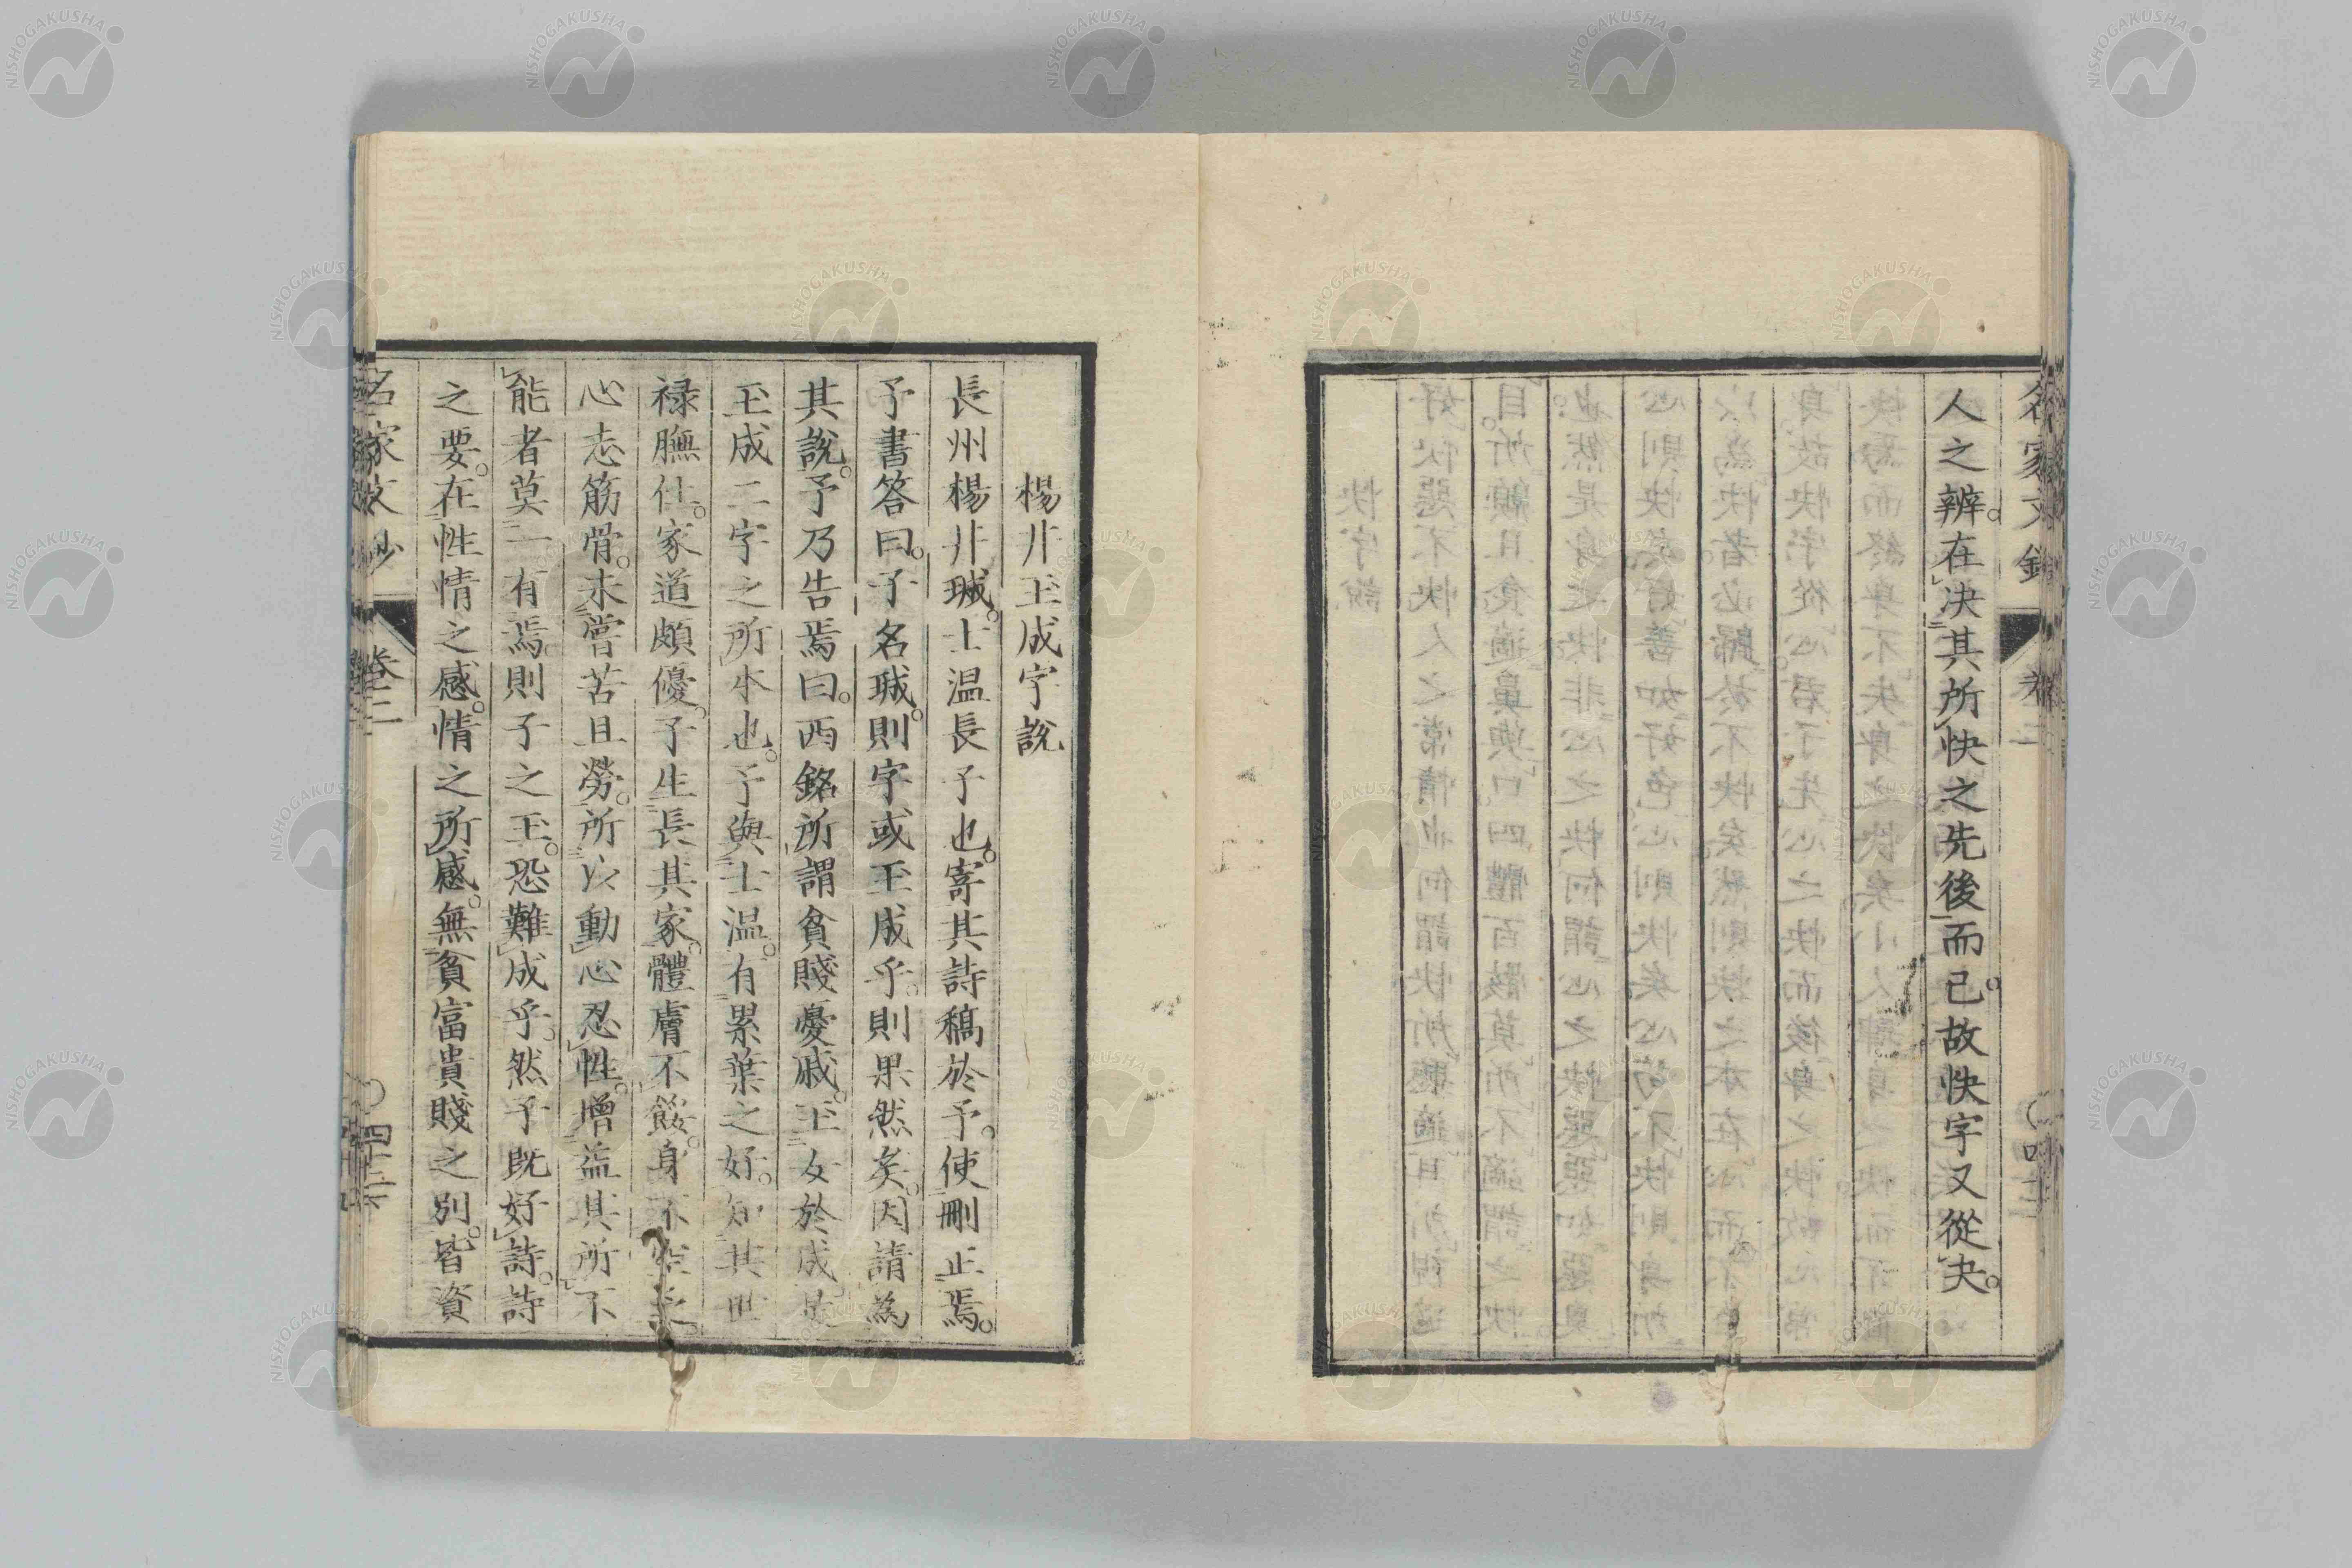 名家文鈔
卷三
人之辨。在決其所快之先後而已。故快字又從夬。
楊井玉成字說
長州楊井瑊。士温長子也。寄其詩稿於予。使刪正焉。
予書答曰。子名瑊。則字或玉成乎。則果然矣。因請為
其說。予乃告焉曰。西銘所謂貧賤憂戚。玉女於成。是
玉成二字之所本也。予與士温。有累葉之好。知其世
禄膴仕。家道頗優。子生長其家。體膚不餒。身不空乏。
心志筋骨。未嘗苦且勞。所以動心忍性。增益其所不
能者莫一有焉。則子之玉。恐難成乎。然予既好詩。詩
之要。在性情之感。情之所感。無貧富貴賤之別。皆資
名家文鈔
卷三
NISHOGAKUSHA